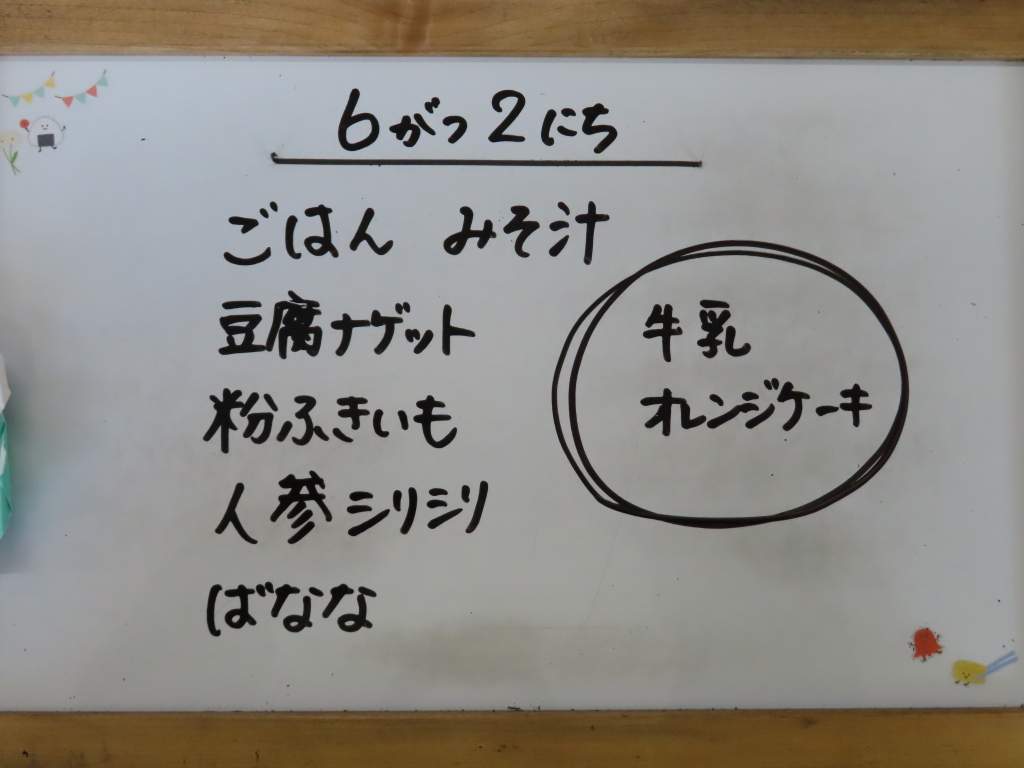 6がつ2にち
ごはん みそ汁
豆腐ナゲット
粉ふきいも
人参シリシリ
ばなな
牛乳
オレンジケーキ